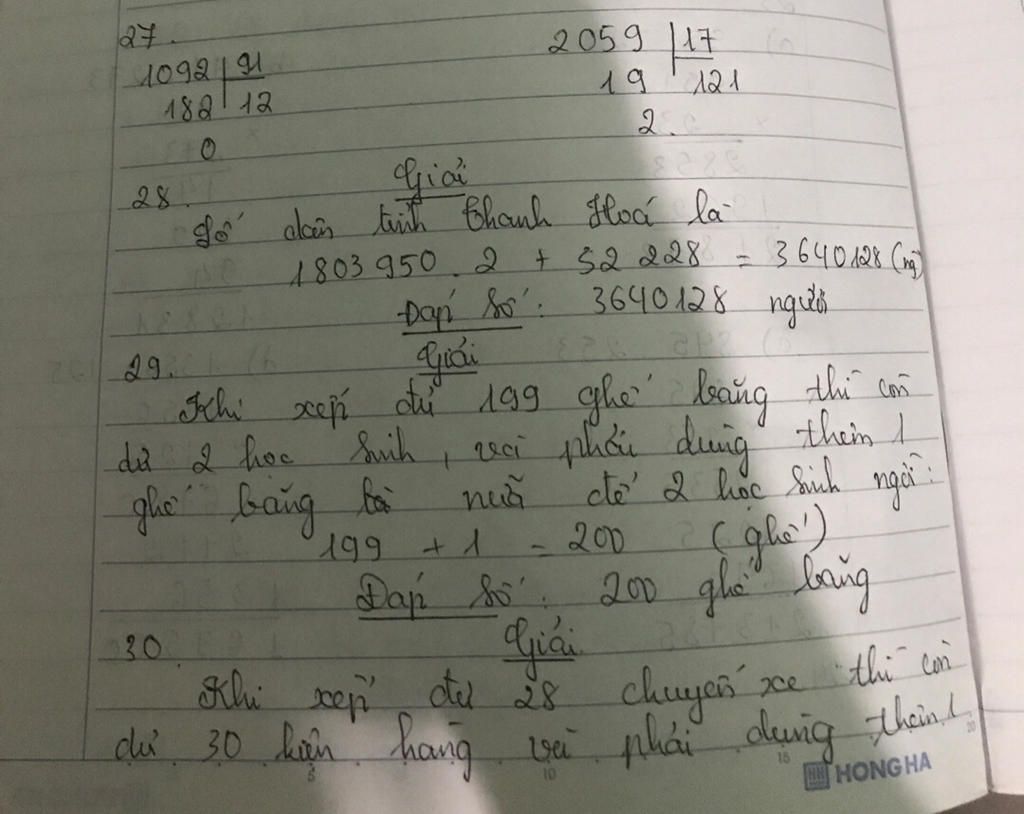 27.
1092 | 91
182 | 12
0
2059 | 17
19 121
2.
28. Giải
Số dân tỉnh Thanh Hoá là
1803 950 . 2 + 32 228 = 3640128 (ng)
Đáp số : 3640128 người
29. Giải
Khi xếp đủ 199 ghế băng thì còn
dư 2 học sinh, và phải dùng thêm 1
ghế băng nữa để 2 học sinh ngồi :
199 + 1 = 200 (ghế)
Đáp số : 200 ghế băng
30. Giải
Khi xếp đủ 28 chuyến xe thì còn
dư 30 kiện hàng và phải dùng thêm 1
HONG HA
5 10 15 20